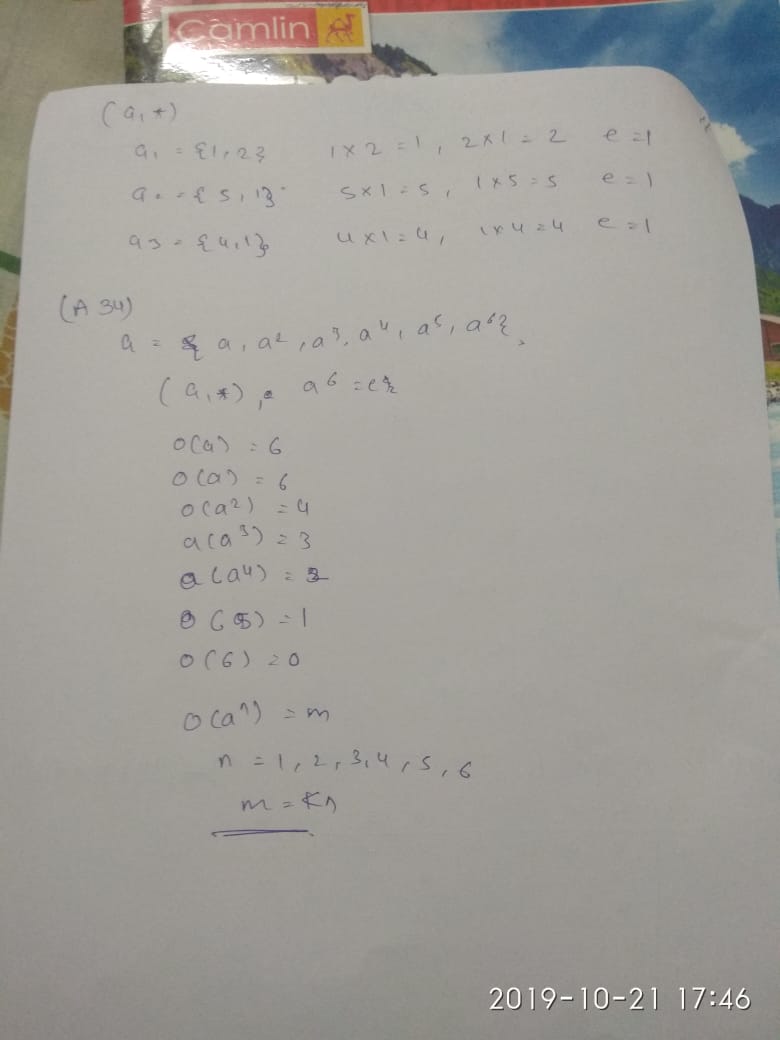 Camlin
(a, *)
a1 = {1, 2} 1 x 2 = 1, 2 x 1 = 2 e = 1
a2 = {5, 1} 5 x 1 = 5, 1 x 5 = 5 e = 1
a3 = {4, 1} 4 x 1 = 4, 1 x 4 = 4 e = 1
(A 34)
a = { a, a², a³, a⁴, a⁵, a⁶},
(a, *), a⁶ = e
o(a) = 6
o(a) = 6
o(a²) = 4
a(a³) = 3
a(a⁴) = 2
o(5) = 1
o(6) = 0
o(aⁿ) = m
n = 1, 2, 3, 4, 5, 6
m = Kn
2019-10-21 17:46